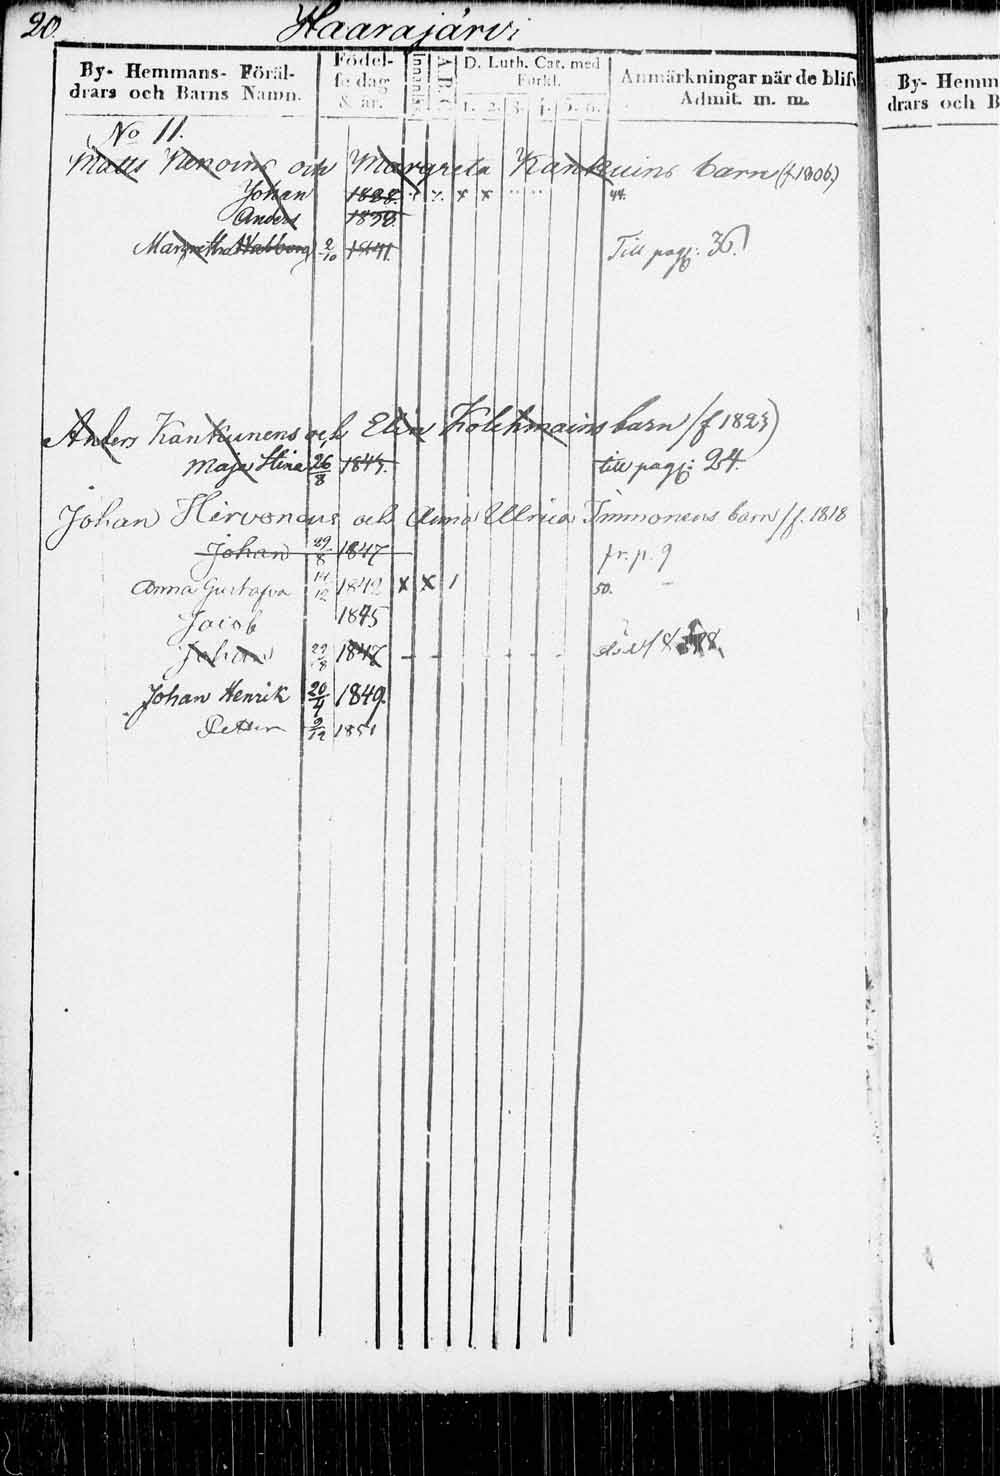 20. Haarajärvi
By- Hemmans- Föräl-
drars och Barns Namn.
Födel-
se dag
& år.
Innanläs.
A.B.C.
D. Luth. Cat. med
Förkl.
1. 2. 3. 4. 5. 6.
Anmärkningar när de blifv
Admit. m. m.
By- Hemm
drars och B
No 11.
Matts och Margreta barn (f. 1806)
Johan 1828. x x 44.
Anders 1830.
Margretha Walborg 2/10 1841. Till pagg: 36.
Anders Kankunens och Elin Kolehmains barn (f 1823)
Maja Stina 26/8 1845. till pagg: 24.
Johan Hirvonens och Anna Ulrica Immonens barn (f. 1818
Johan 29/8 1847 fr. p. 9
Anna Gustafva 14/12 1842 x x 1 50.
Jacob 1845
Johan 29/8 1847 - - - - - -
Johan Henrik 20/4 1849.
Petter 9/12 1851